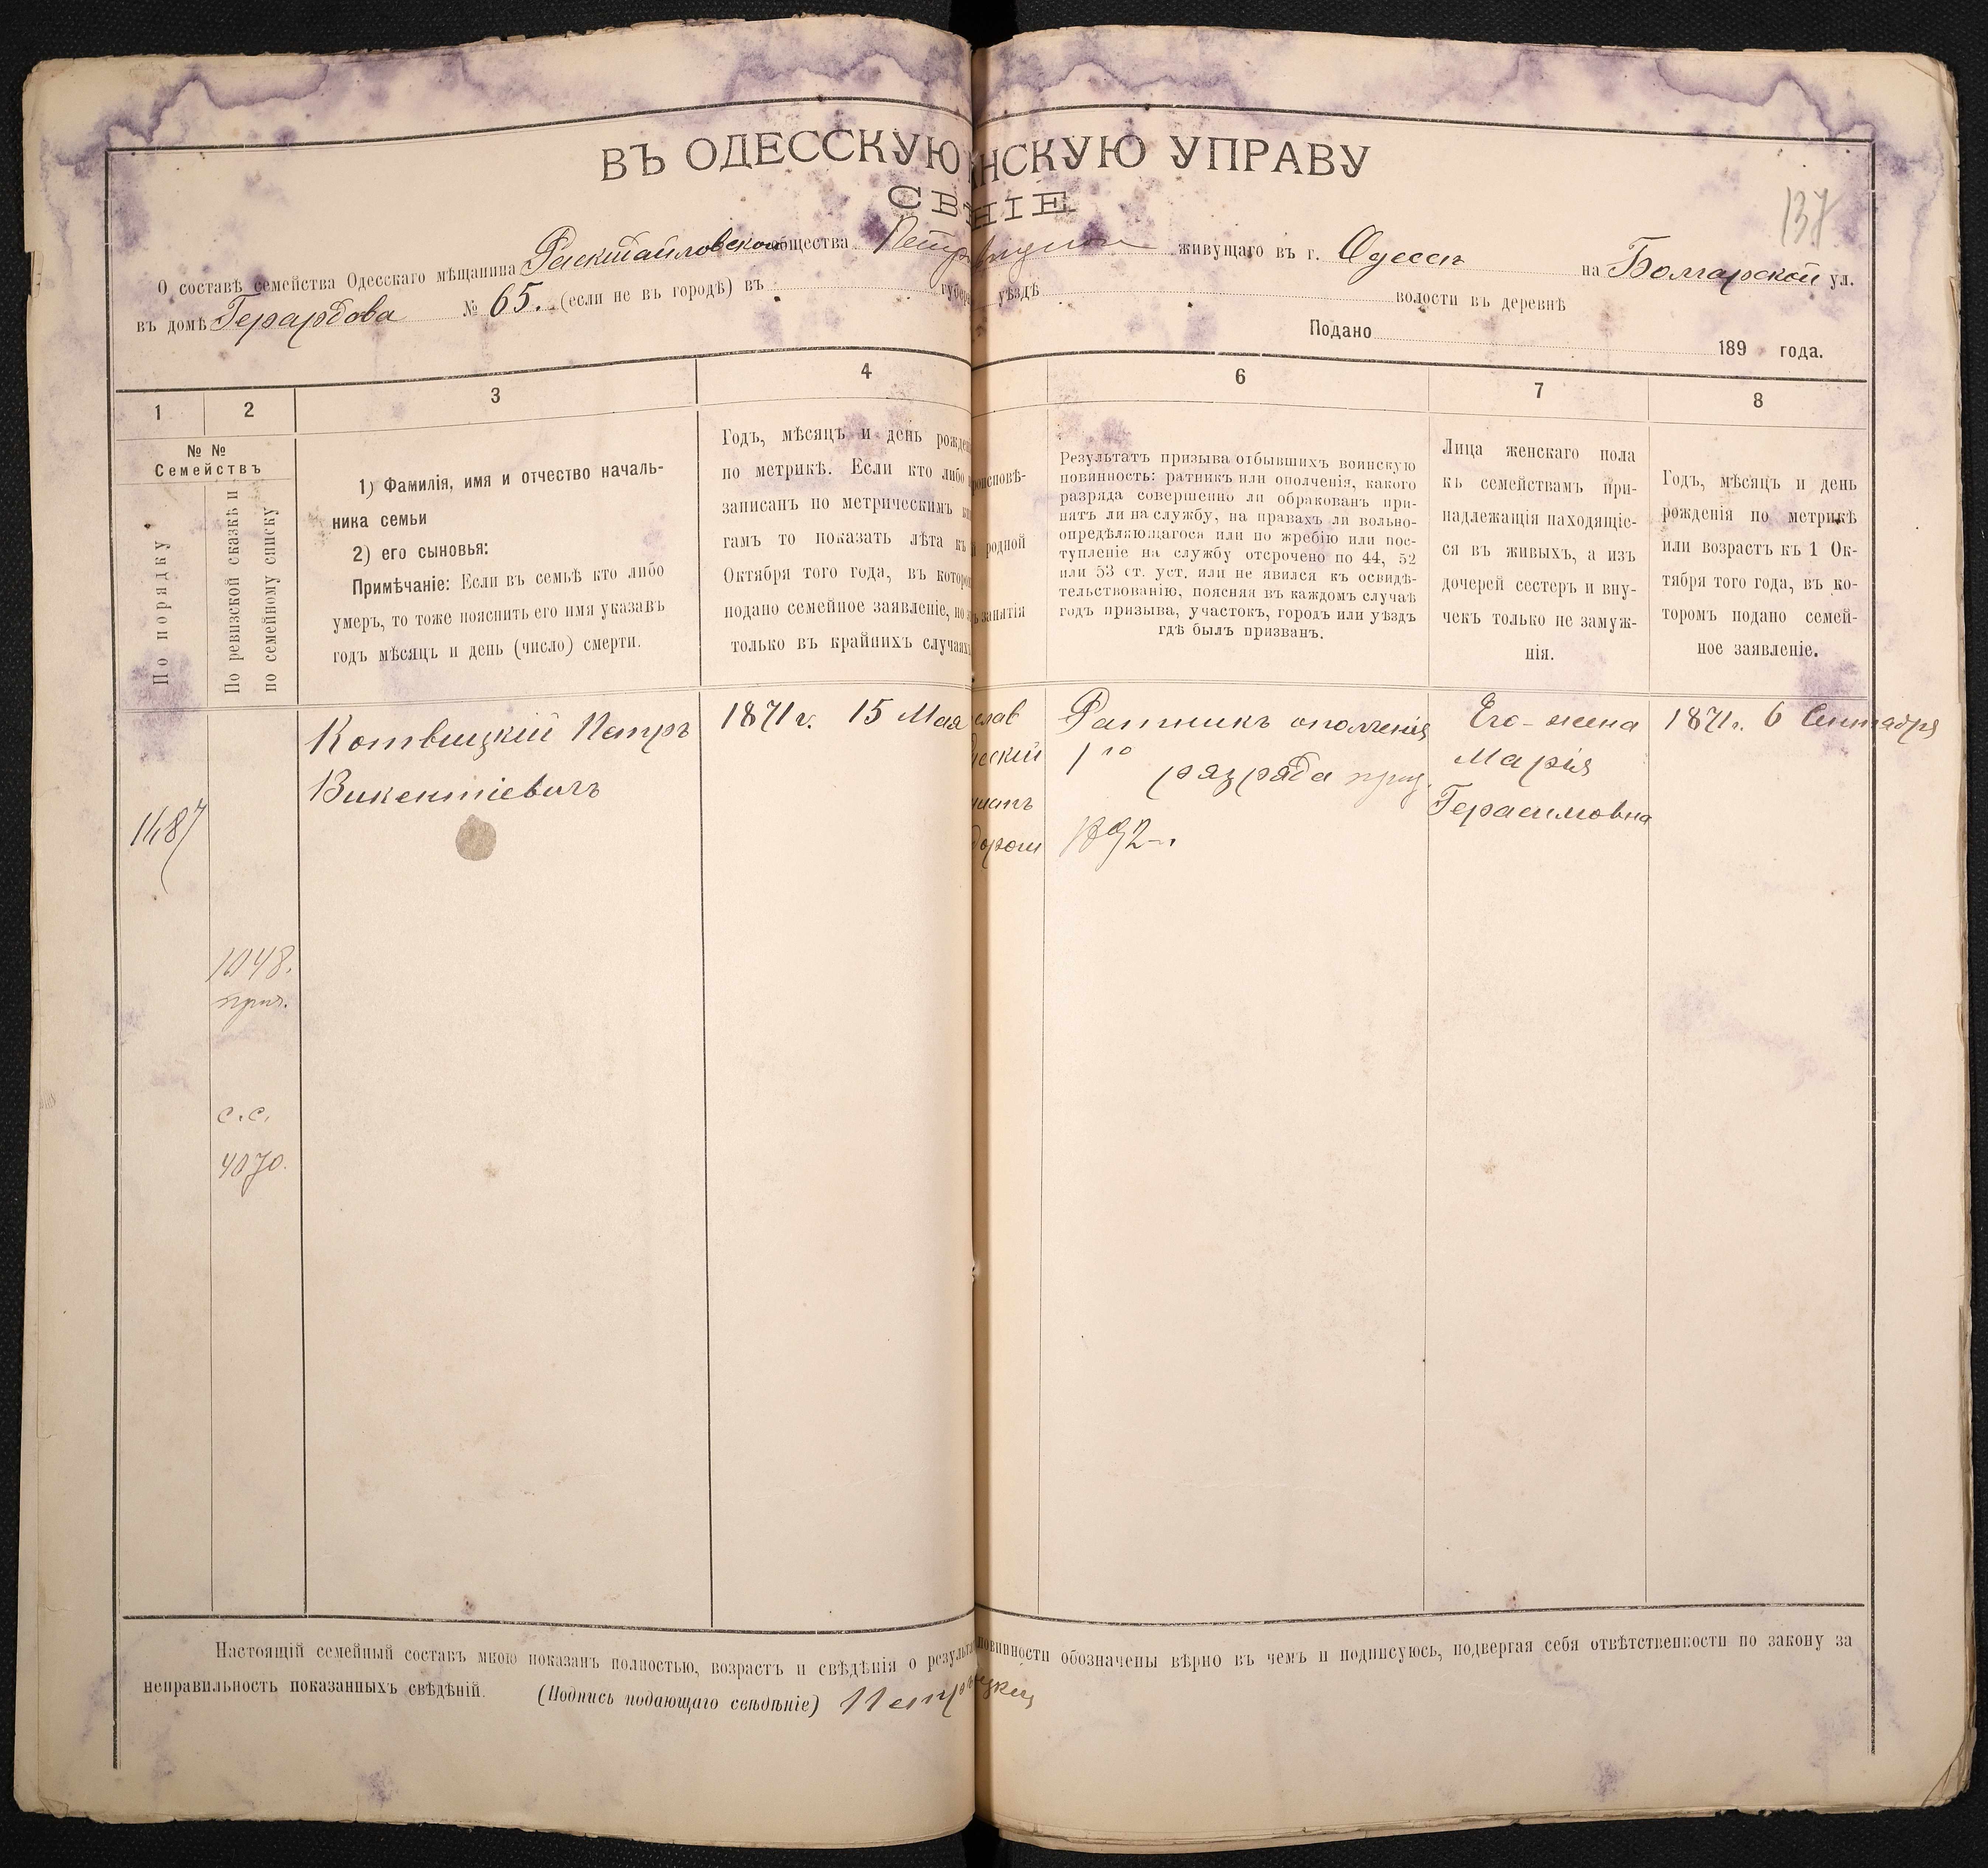 ВЪ ОДЕССКУЮ НСКУЮ УПРАВУ
СВ НІЕ
137
О составѣ семейства Одесскаго мѣщанина общества Петр живущаго въ г. Одессѣ на Болгарской ул.
въ домѣ Герардова № 65. (если не въ городѣ) въ губер уѣздѣ волости въ деревнѣ
Подано 189 года.
1 2 3 4 6 7 8
№ №
Семействъ
По порядку
По ревизской сказкѣ и
по семейному списку
1) Фамилія, имя и отчество началь-
ника семьи
2) его сыновья:
Примѣчаніе: Если въ семьѣ кто либо
умеръ, то тоже пояснить его имя указавъ
годъ мѣсяцъ и день (число) смерти.
Годъ, мѣсяцъ и день рожде
по метрикѣ. Если кто либо
записанъ по метрическимъ кн
гамъ то показать лѣта къ
Октября того года, въ котор
подано семейное заявленіе, но
только въ крайнихъ случаях
роисповѣ-
родной
занятія
Результатъ призыва отбывшихъ воинскую
повинность: ратникъ или ополченія, какого
разряда совершенно ли обракованъ при-
нятъ ли на службу, на правахъ ли вольно-
опредѣляющагося или по жребію или пос-
тупленіе на службу отсрочено по 44, 52
или 53 ст. уст. или не явился къ освидѣ-
тельствованію, поясняя въ каждомъ случаѣ
годъ призыва, участокъ, городъ или уѣздъ
гдѣ былъ призванъ.
Лица женскаго пола
къ семействамъ при-
надлежащія находящіе-
ся въ живыхъ, а изъ
дочерей сестеръ и вну-
чекъ только не замуж-
нія.
Годъ, мѣсяцъ и день
рожденія по метрикѣ
или возрастъ къ 1 Ок-
тября того года, въ ко-
торомъ подано семей-
ное заявленіе.
1487
1048.
прич.
с.с.
4070.
Котвицкій Петръ
Викентіевичъ
1871 г. 15 Мая
слав
Ратникъ ополченія
1го разряда приз.
1892 г.
Его жена
Марія
Герасимовна
1871 г. 6 Сентября
Настоящій семейный составъ мною показанъ полностью, возрастъ и свѣдѣнія о результ повинности обозначены вѣрно въ чемъ и подписуюсь, подвергая себя отвѣтственности по закону за
неправильность показанныхъ свѣдѣній. (Подпись подающаго свѣдѣніе) Петръ цкій